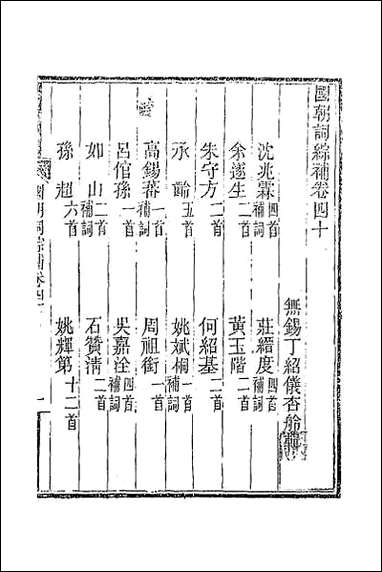 國朝詞綜補卷四十
無錫丁紹儀杏舲輯
沈兆霖四首補詞 莊縉度四首補詞
余邃生二首 黃玉階二首
朱守方二首 何紹基二首
承齡五首 姚斌桐一首補詞
高錫蕃一首補詞 周祖銜一首
呂佺孫一首 吳嘉洤四首補詞
如山二首補詞 石贊清二首
孫超六首 姚輝第十二首
國朝詞綜補卷四十
一